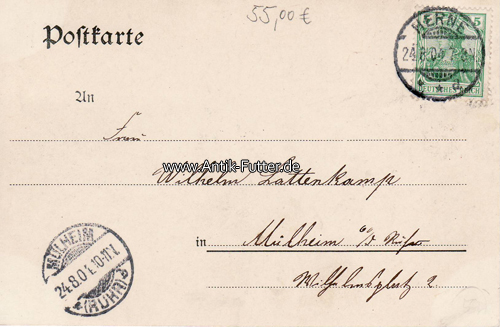 55,00 €
Postkarte
HERNE
24.8.04.7-8N.
* * d
5
DEUTSCHES REICH
An
Frau
www.Antik-Futter.de
Wilhelm Lattenkamp
in Mülheim a/d Ruhr
Wilhelmsplatz 2.
MÜLHEIM
24.8.04.10-11V.
(RUHR)